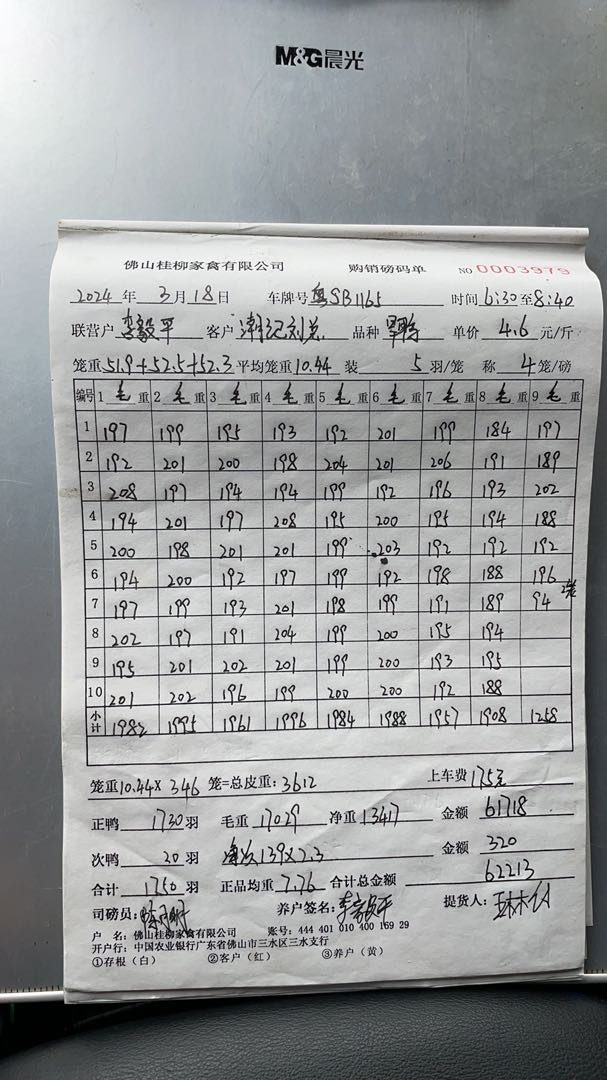 M&G晨光
佛山桂柳家禽有限公司 购销磅码单 NO 0003979
2024 年 3 月 18 日 车牌号 粤SB1165 时间 6:30 至 8:40
联营户 李毅平 客户 潮记刘总 品种 单价 4.6 元/斤
笼重 51.9+52.5+52.3 平均笼重 10.44 装 5 羽/笼 称 4 笼/磅
编号 1 毛 重 2 毛 重 3 毛 重 4 毛 重 5 毛 重 6 毛 重 7 毛 重 8 毛 重 9 毛 重
1 197 199 195 193 192 201 199 184 197
2 192 201 200 198 204 201 206 191 189
3 208 197 194 194 199 192 196 193 202
4 194 201 197 208 195 200 195 194 188
5 200 198 201 201 199 203 192 192 192
6 194 200 192 197 199 192 198 188 196
7 197 199 193 201 198 199 191 189 94 2笼
8 202 197 191 204 199 200 195 194
9 195 201 202 201 199 200 193 195
10 201 202 196 199 200 200 192 188
小计 1982 1995 1961 1996 1984 1988 1957 1908 1258
笼重 10.44 × 346 笼=总皮重: 3612 上车费 175元
正鸭 1730 羽 毛重 17029 净重 13417 金额 61718
次鸭 20 羽 139×2.3 金额 320
合计 1750 羽 正品均重 7.76 合计总金额 62213
司磅员: 养户签名: 李毅平 提货人:
户 名: 佛山桂柳家禽有限公司 账号: 444 401 010 400 169 29
开户行: 中国农业银行广东省佛山市三水区三水支行
①存根（白） ②客户（红） ③养户（黄）